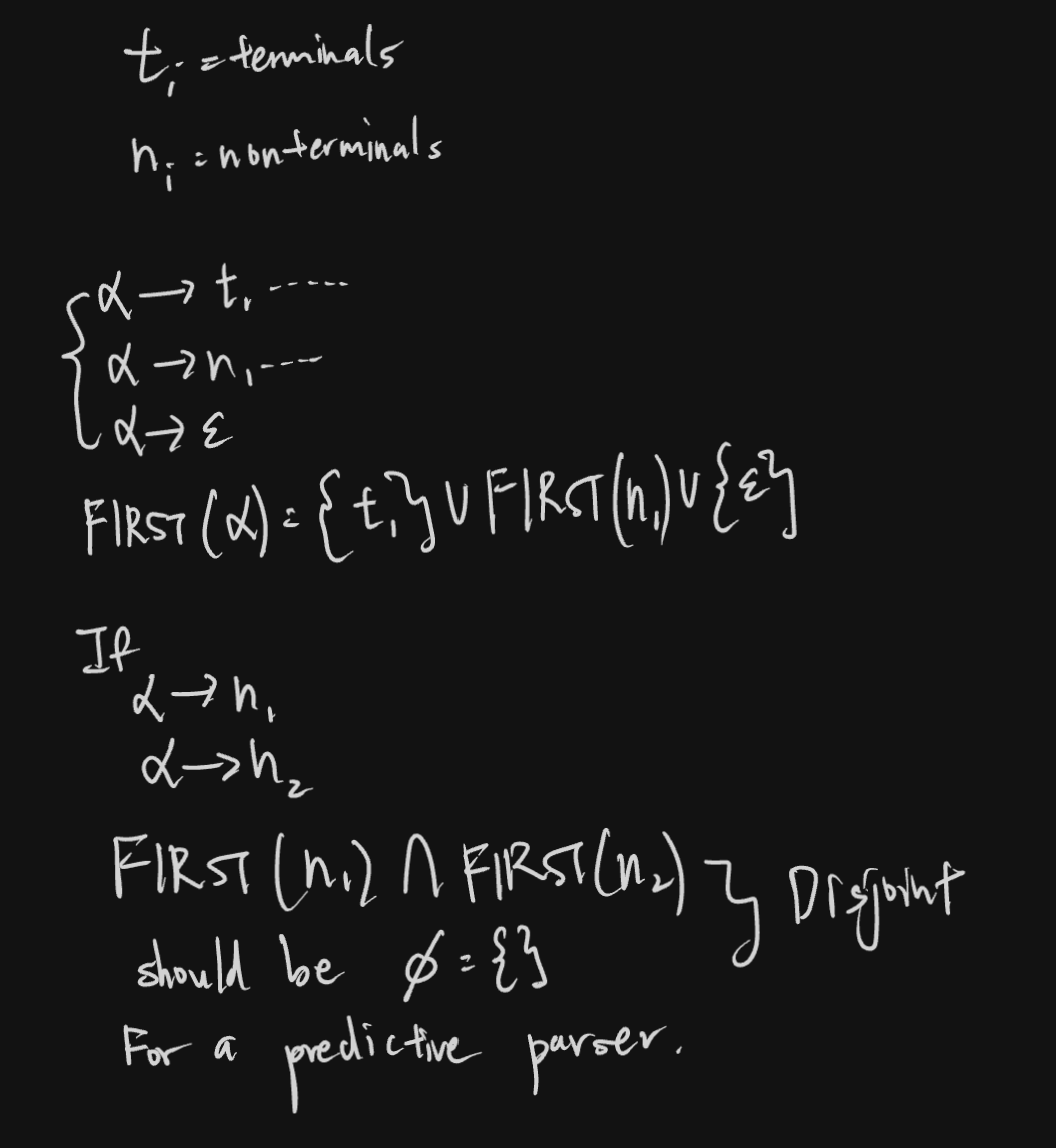 tᵢ = terminals
nᵢ = nonterminals
α → t₁ ......
α → n₁ ....
α → ε
FIRST(α) = {t₁} ∪ FIRST(n₁) ∪ {ε}
If
α → n₁
α → n₂
FIRST(n₁) ∩ FIRST(n₂) } Disjoint
should be ϕ = {}
For a predictive parser.